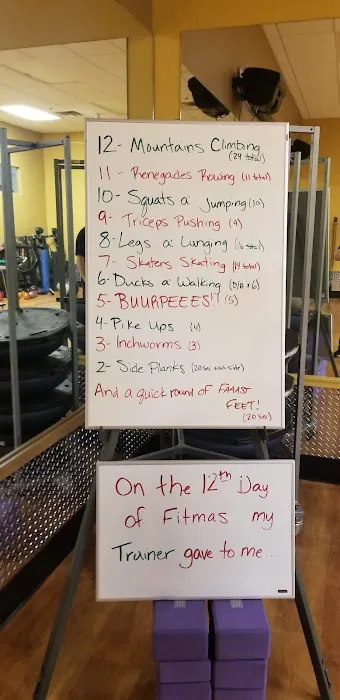 12- Mountains Climbing
(24 total)
11- Renegades Rowing (11 total)
10- Squats a' Jumping (10)
9- Triceps Pushing (9)
8- Legs a' Lunging (16 total)
7- Skaters Skating (14 total)
6- Ducks a' Walking (D/B x 6)
5- BUURPEEES!! (5)
4- Pike Ups (4)
3- Inchworms (3)
2- Side Planks (20 sec each side)
And a quick round of FAAAST
FEET!
(20 sec)
On the 12th Day
of Fitmas my
Trainer gave to me...